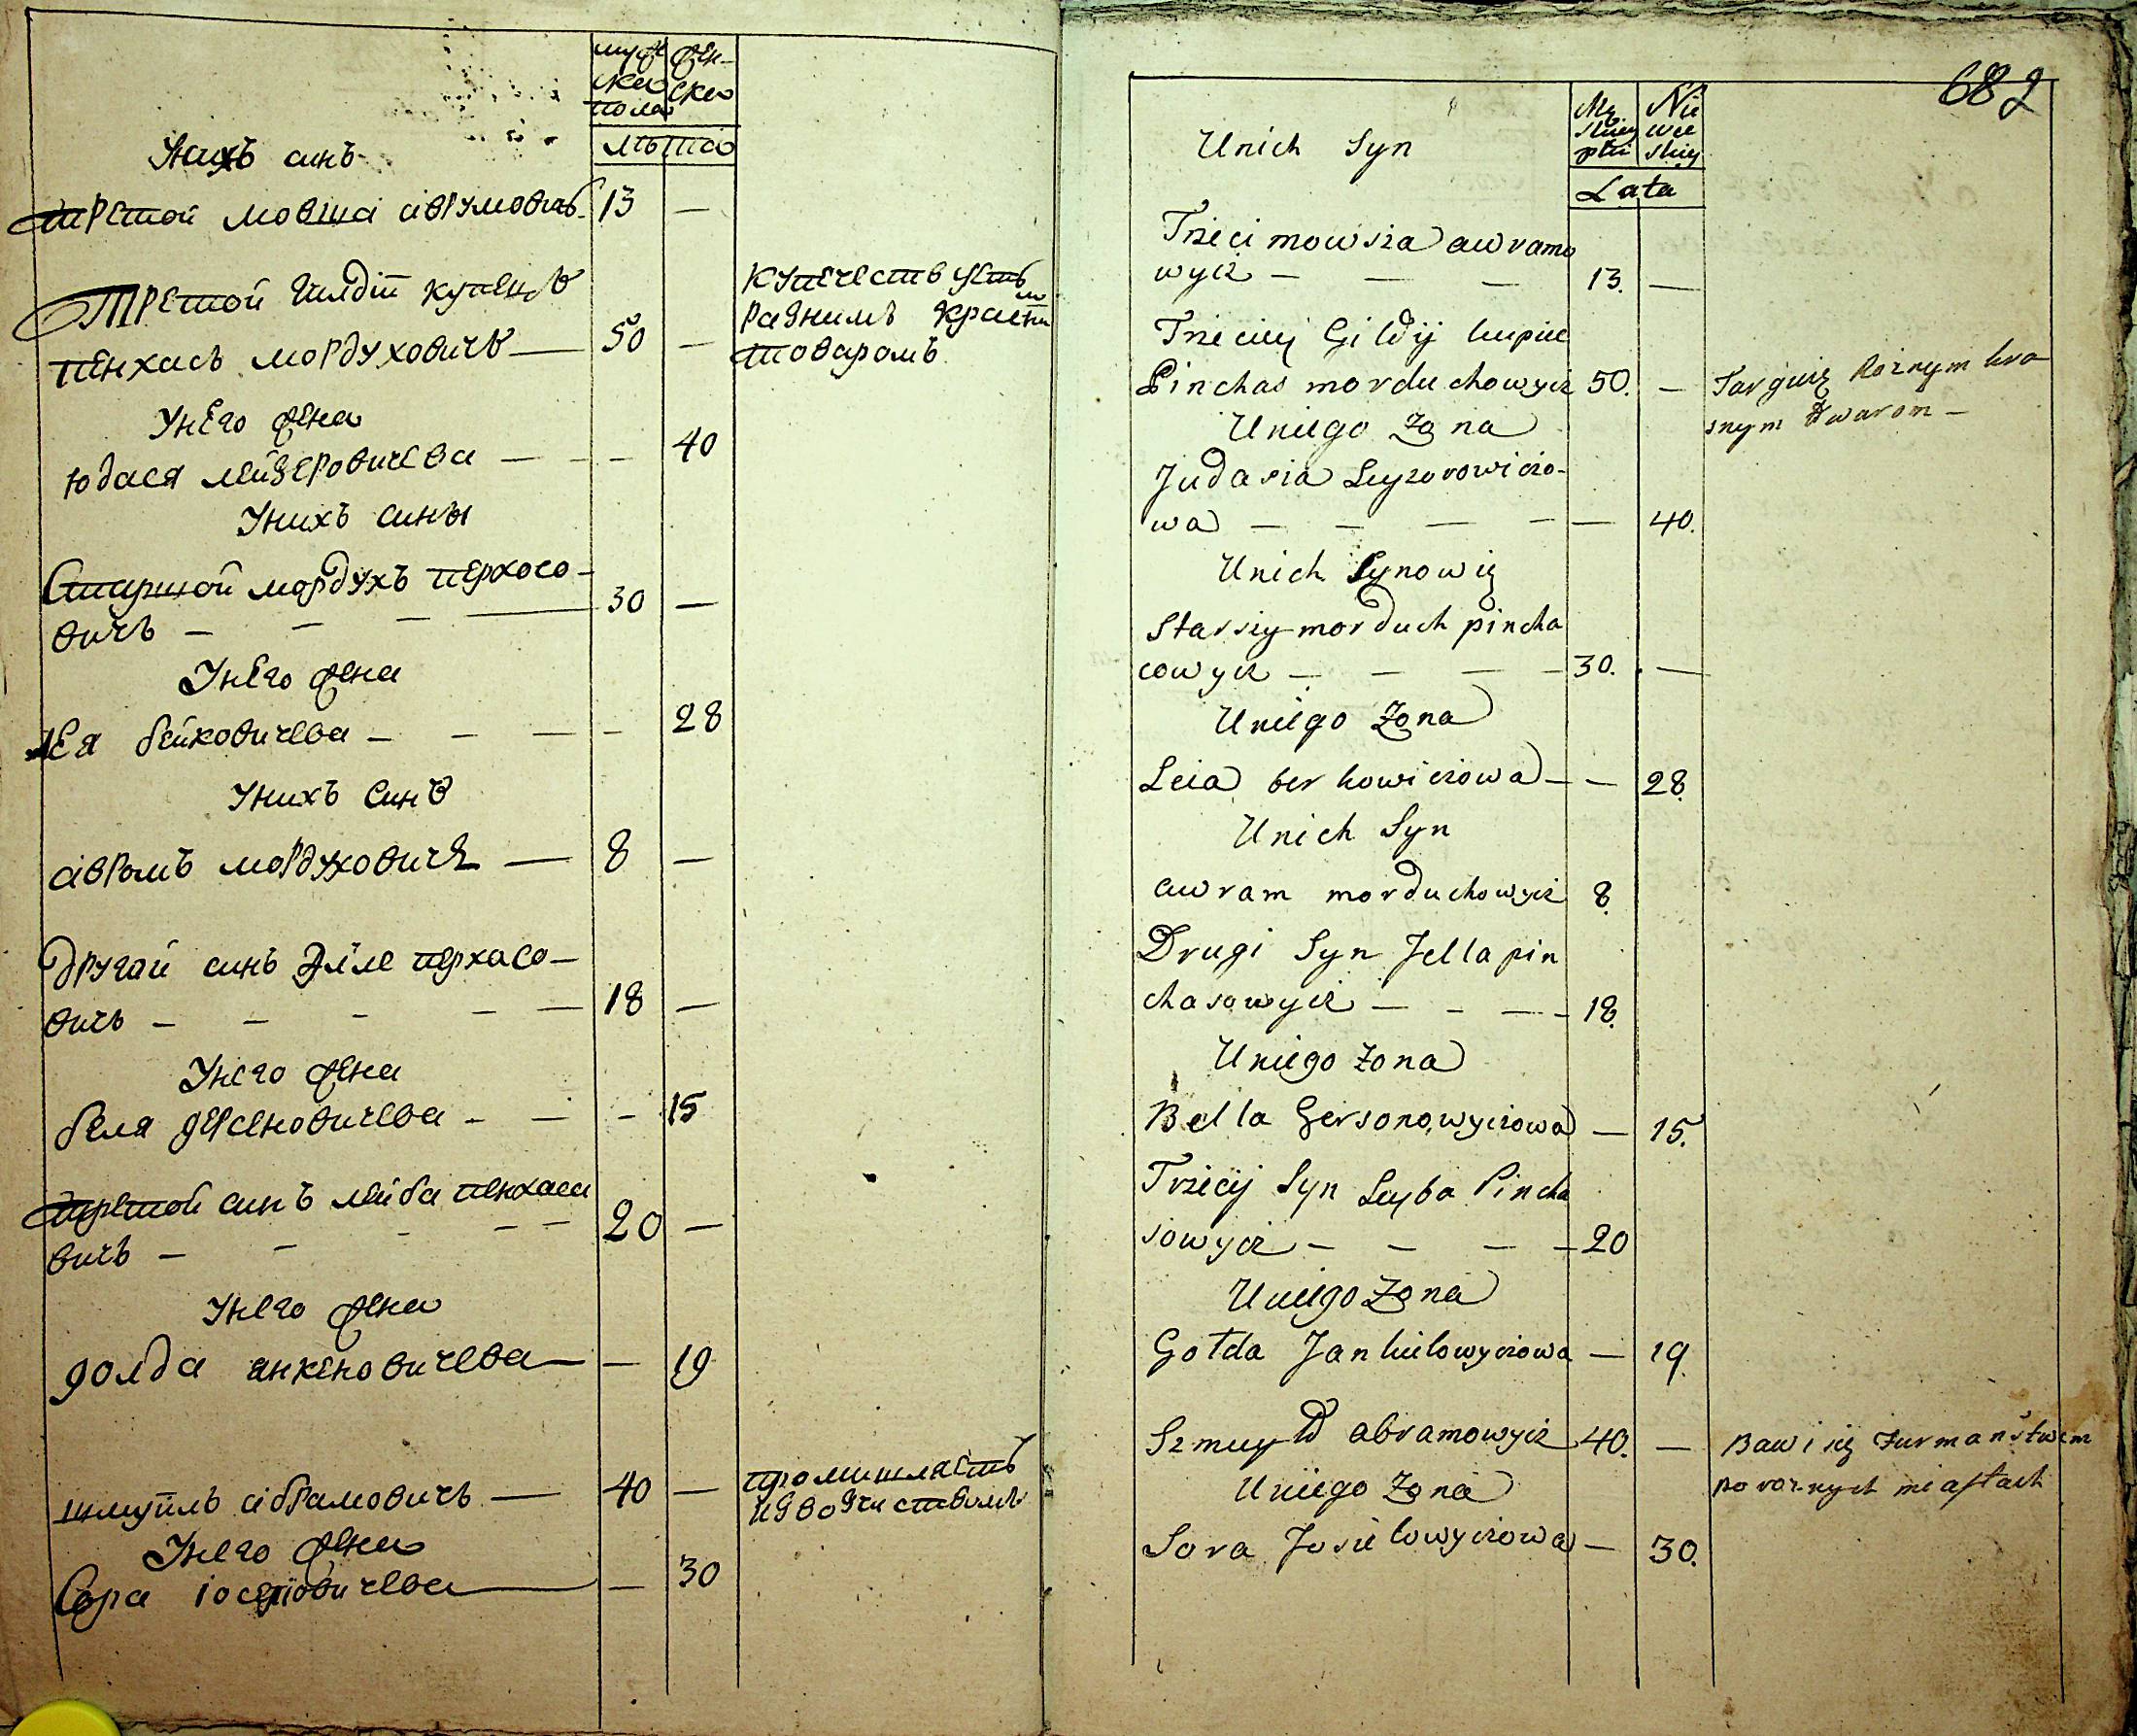 мужеска пола
женска
лѣта
Унихъ синъ
третой мовша аврумовичъ 13 —
Третой гилдіи купецъ
пенхасъ мордуховичъ — 50 —
купечествуетъ
разнимъ красни
товаромъ
Унего жена
юдася лейзеровичева — — 40
Унихъ сины
Старшой мордухъ перхосо-
вичъ — — — 30 —
Унего жена
лея берковичева — — — — 28
Унихъ синъ
авромъ мордуховичъ — 8 —
другой синъ Элле перхасо-
вичъ — — — — — 18 —
Унего жена
беля герсеновичева — — — 15
третой синъ лейба пенхаси
вичъ — — — — — 20 —
Унего жена
голда янкеновичева — — 19
шмуйлъ абрамовичъ — 40 —
промишлястъ
извозчиствомъ
Унего жена
Сора іоселіовичева — — 30
682
Mę skiey płci
Nie wie skiey
Lata
Unich Syn
Trzeci mowsza awramo
wycz — — — 13. —
Trzeciey Gildij kupiec
Pinchas morduchowycz 50. —
Targuię Roznym kra
snym towarom —
Uniego Zona
Judasia Leyzorowiczo-
wa — — — — — 40.
Unich Synowię
Starszy morduch pincha
cowycz — — — — 30. —
Uniego Zona
Leia berkowiczowa — — 28.
Unich Syn
awram morduchowycz 8.
Drugi Syn Jella pin
chasowycz — — — — 18.
Uniego Zona
Bella Gersonowyczowa — 15.
Trzecij Syn Leyba Pincha
sowycz — — — — 20
Uniego Zona
Gołda Jankielowyczowa — 19.
Szmuyło abramowycz 40. —
Bawi się Furmaństwem
po roznych miastach
Uniego Zona
Sora Josielowyczowa — 30.